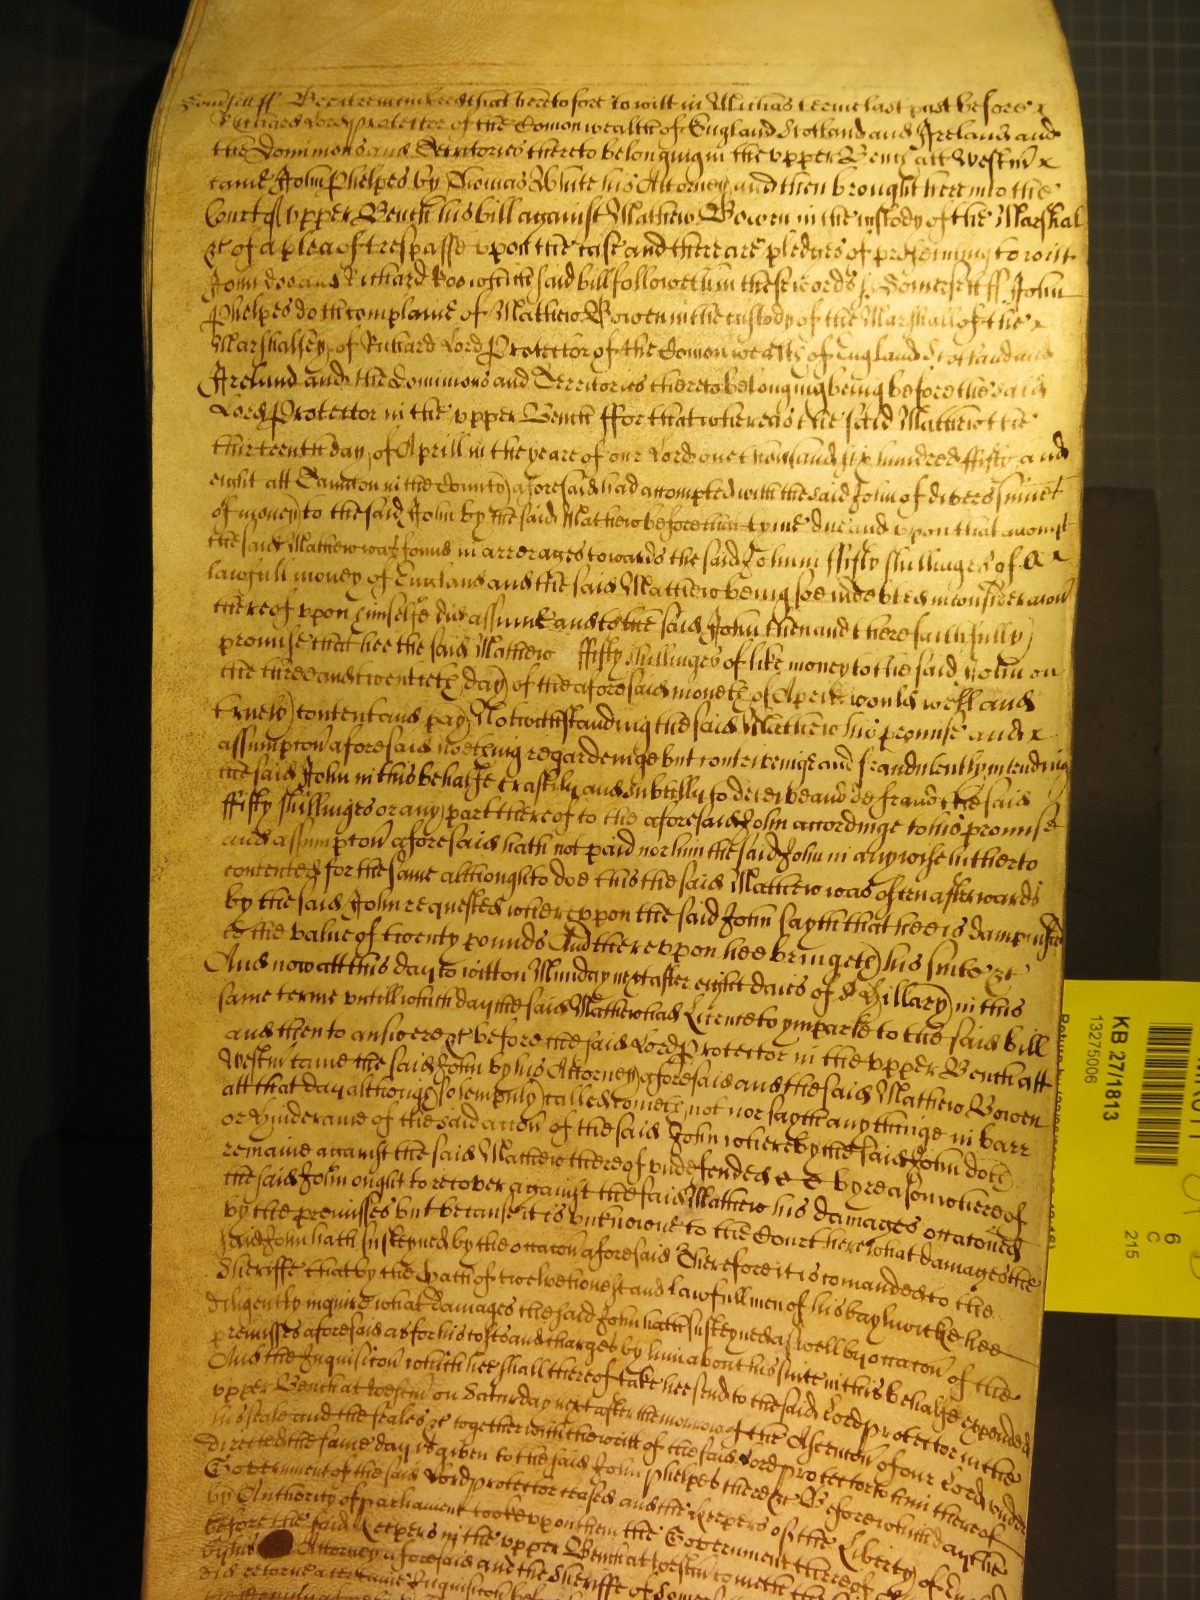 Somersett ss Bee it remembred that heretofore to witt in Michas terme last past before x
Richard Lord Protector of the Comonwealth of England Scotland and Ireland and
the Dominions and Territories thereto belonging in the upper Bench att Westm x
came John Phelpes by Thomas White his Attorney and then brought here into the
Court of upper Bench his bill against Mathew Bowen in the custody of the Marshal
&c of a plea of trespasse upon the case and there are pledges of prosecuting to witt
John doe and Richard Roe which said bill followeth in these words s Somersett ss John
Phelpes doth complaine of Mathew Bowen in the custody of the Marshall of the x
Marshalsey of Richard Lord Protector of the Comonwealth of England Scotland and
Ireland and the dominions and Territories thereto belonging being before the said
Lord Protector in the upper Bench ffor that whereas the said Mathew the
thirteenth day of Aprill in the yeare of our Lord one thousand six hundred fifty and
eight att Taunton in the County aforesaid had accompted with the said John of divers sumes
of money to the said John by the said Mathew before that tyme due and upon that accompt
the said Mathew was found in arrerages towards the said John in ffifty shillinges of x
lawfull money of England and the said Mathew being soe indebted in consideracon
thereof upon himselfe did assume and to the said John then and there faithfully
promise that hee the said Mathew ffifty shillinges of like money to the said John on
the three and twentieth day of the aforesaid moneth of Aprill would well and
truely content and pay Notwithstanding the said Mathew his promise and x
assumpcon aforesaid nothing regardeinge but contriveinge and fraudulently intending
the said John in this behalfe craftily and subtilly to deceive and defraud the said
ffifty shillinges or any part thereof to the aforesaid John accordinge to his promise
and assumpcon aforesaid hath not paid nor him the said John in any wise hitherto
contented for the same although to doe this the said Mathew was often afterwards
by the said John requested whereupon the said John sayth that hee is dampnified
to the value of twenty pounds And thereupon hee bringeth his suite &c
And now att this day to witt on Munday next after eight daies of St Hillary in this
same terme untill which day the said Mathew had Licence to imparle to the said bill
and then to answere &c before the said Lord Protector in the upper Bench att
Westm came the said John by his Attorney aforesaid and the said Mathew Bowen
att that day although solempnly called cometh not nor sayth any thinge in barr
or hinderance of the said accon of the said John whereby the said John doth
remaine against the said Mathew thereof undefended &c by reason whereof
the said John ought to recover against the said Mathew his damages occaconed
by the premisses but because it is unknowne to the Court here what damages the
said John hath susteyned by the occacon aforesaid Therefore it is comanded to the
Sheriffe that by the oath of twelve honest and lawfull men of his bayliwicke hee
diligently inquire what damages the said John hath susteyned aswell by occacon of the
premisses aforesaid as for his costs and charges by him about his suite in this behalfe expended
And the Inquisicon which hee shall thereof take hee send to the said Lord Protector in the
upper Bench at Westm on Saturday next after the morrow of the Ascencon of our Lord under
his seale and the seales &c together with the writt of the said Lord Protector to him thereof
directed the same day is given to the said John Phelpes there &c Before which day the
Government of the said Lord Protector ceased and the Keepers of the Liberty of
by Authority of parliament tooke upon them the Government thereof
before the said Keepers in the upper Bench at Westm cometh the
by his Attorney aforesaid and the Sheriffe of
did retorne a certaine Inquisicon
KB 27/1813
13275006
6
C
215